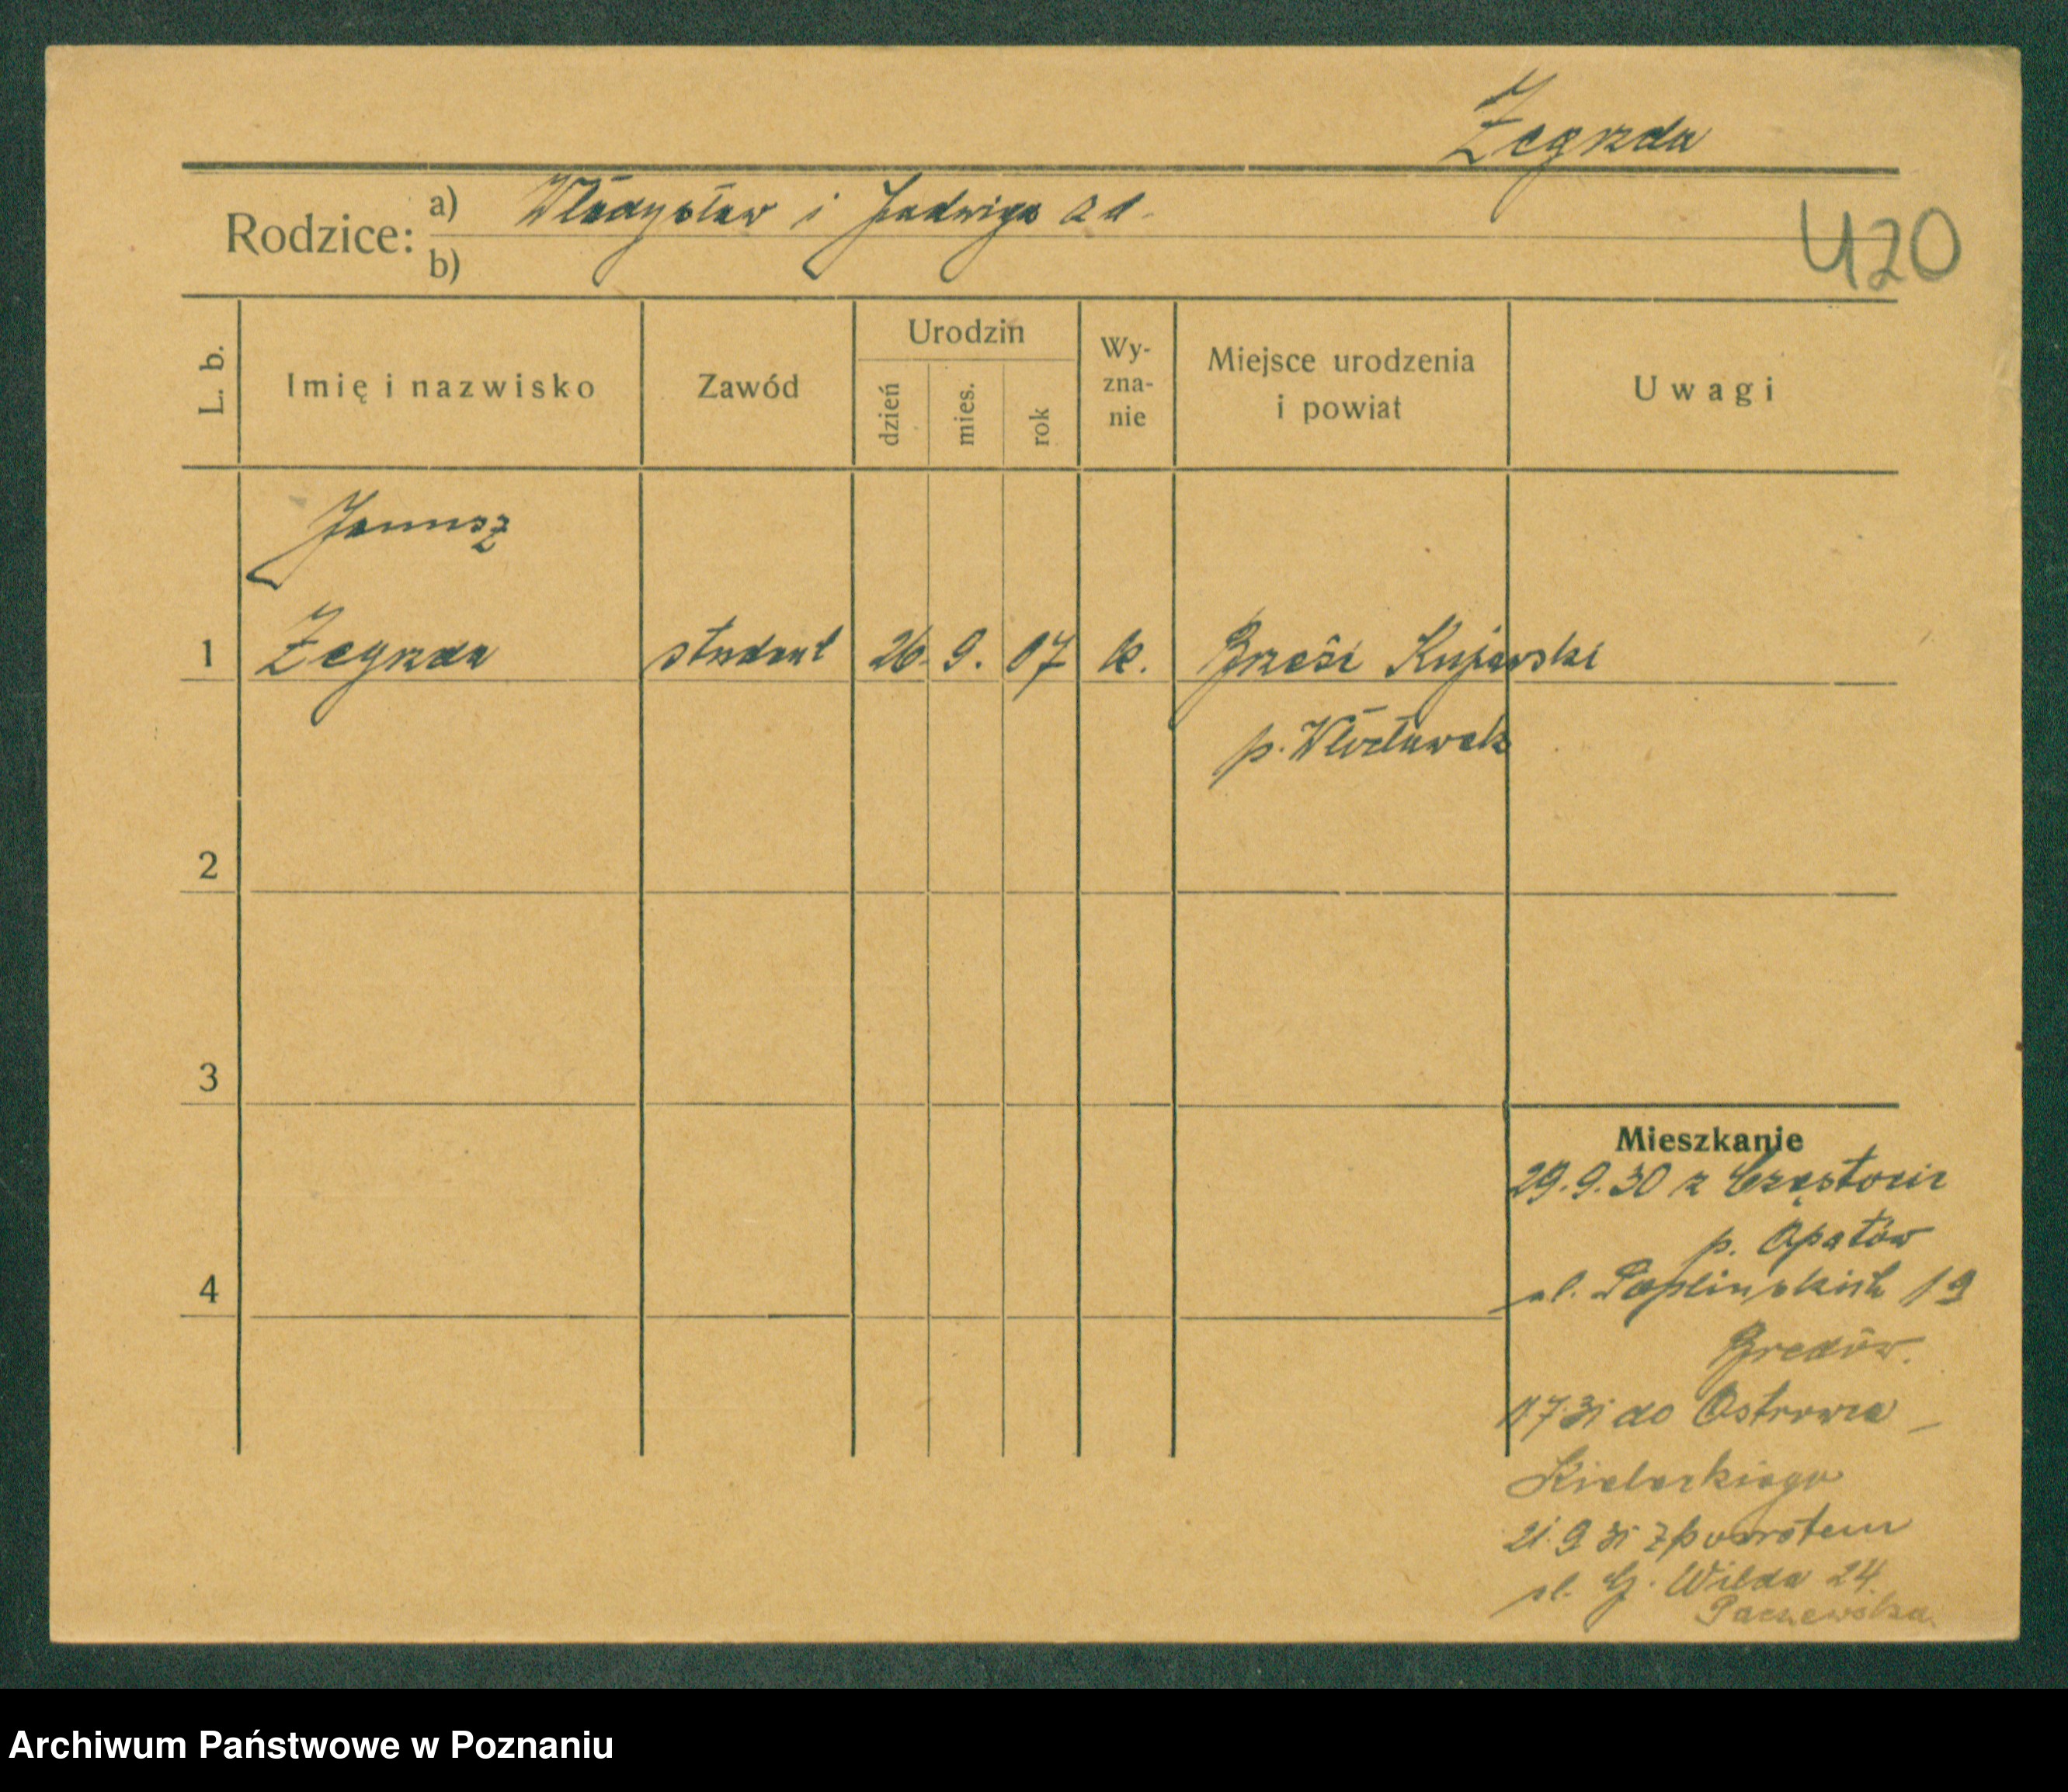 Zegrzda
Rodzice: a) Władysław i Jadwiga
b)
420
L. b.
Imię i nazwisko
Zawód
Urodzin
dzień
mies.
rok
Wy-
zna-
nie
Miejsce urodzenia
i powiat
Uwagi
Janusz
1 Zegrzda student 26. 9. 07 k. Brześć Kujawski
p. Włocławek
2
3
4
Mieszkanie
29.9.30 z Częstocic
p. Opatów
ul. Poplińskich
7 31 do Ostrowca
Kieleckiego
21. 9 31 z powrotem
ul. G. Wilda 24.
Archiwum Państwowe w Poznaniu